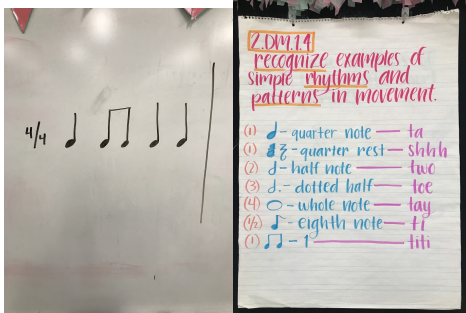 4/4
2.DM.1.4
recognize examples of
simple rhythms and
patterns in movement.
(1) - quarter note — ta
(1) - quarter rest — shhh
(2) - half note — two
(3) - dotted half — toe
(4) - whole note — tay
(1/2) - eighth note — ti
(1) - 1 — titi